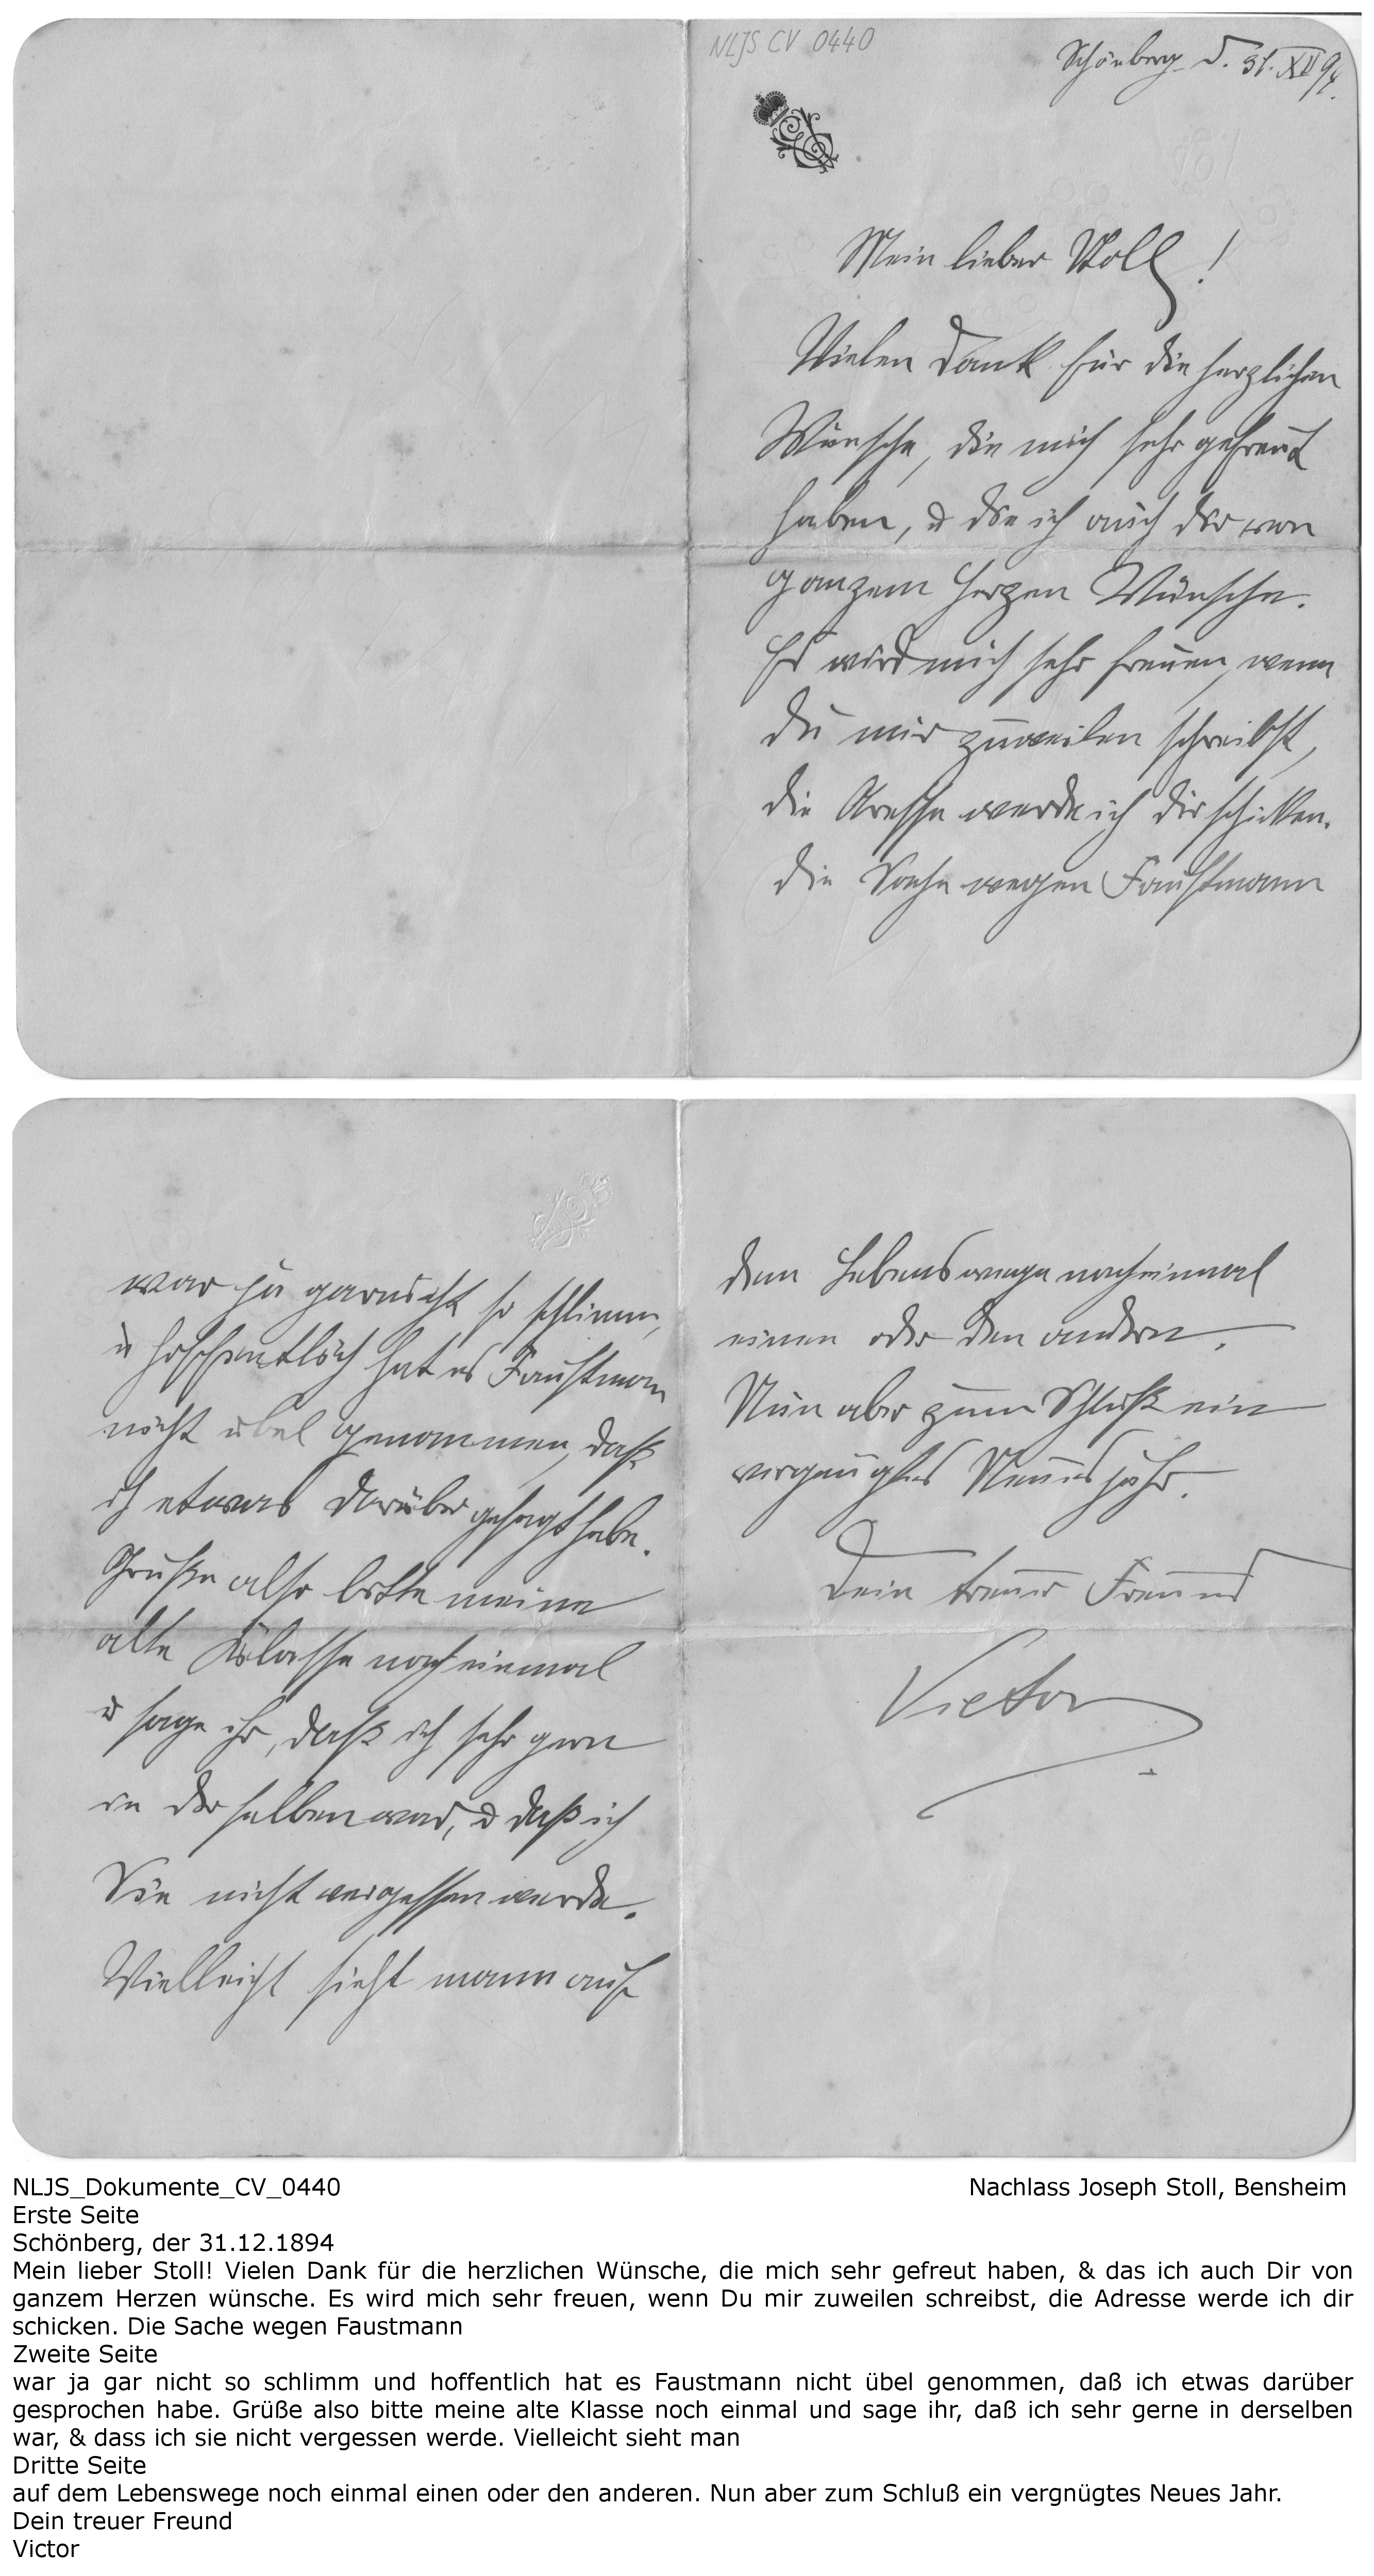 NLJS CV 0440
Schönberg d. 31. XII 94.
Mein lieber Stoll!
Vielen Dank für die herzlichen
Wünsche, die mich sehr gefreut
haben, & die ich auch dir von
ganzem Herzen Wünsche.
Es wird mich sehr freuen, wenn
du mir zuweilen schreibst,
die Adresse werde ich dir schicken.
Die Sache wegen Faustmann
war ja garnicht so schlimm,
u hoffentlich hat es Faustmann
nicht übel genommen, daß
ich etwas darüber gesagt habe.
Grüße also bitte meine
alte Klasse noch einmal
u sage ihr, daß ich sehr gern
in derselben war, & daß ich
Sie nicht vergessen werde.
Vielleicht sieht mann auf
dem Lebenswege noch einmal
einen oder den andern.
Nun aber zum Schluß ein
vergnügtes Neues jahr.
Dein treuer Freund
Victor
NLJS_Dokumente_CV_0440 Nachlass Joseph Stoll, Bensheim
Erste Seite
Schönberg, der 31.12.1894
Mein lieber Stoll! Vielen Dank für die herzlichen Wünsche, die mich sehr gefreut haben, & das ich auch Dir von
ganzem Herzen wünsche. Es wird mich sehr freuen, wenn Du mir zuweilen schreibst, die Adresse werde ich dir
schicken. Die Sache wegen Faustmann
Zweite Seite
war ja gar nicht so schlimm und hoffentlich hat es Faustmann nicht übel genommen, daß ich etwas darüber
gesprochen habe. Grüße also bitte meine alte Klasse noch einmal und sage ihr, daß ich sehr gerne in derselben
war, & dass ich sie nicht vergessen werde. Vielleicht sieht man
Dritte Seite
auf dem Lebenswege noch einmal einen oder den anderen. Nun aber zum Schluß ein vergnügtes Neues Jahr.
Dein treuer Freund
Victor